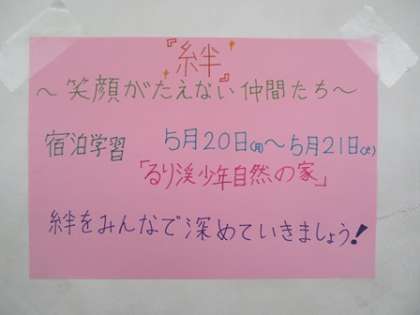 『絆』
～笑顔がたえない仲間たち～
宿泊学習 5月20日(月)～5月21日(火)
「るり渓少年自然の家」
絆をみんなで深めていきましょう!